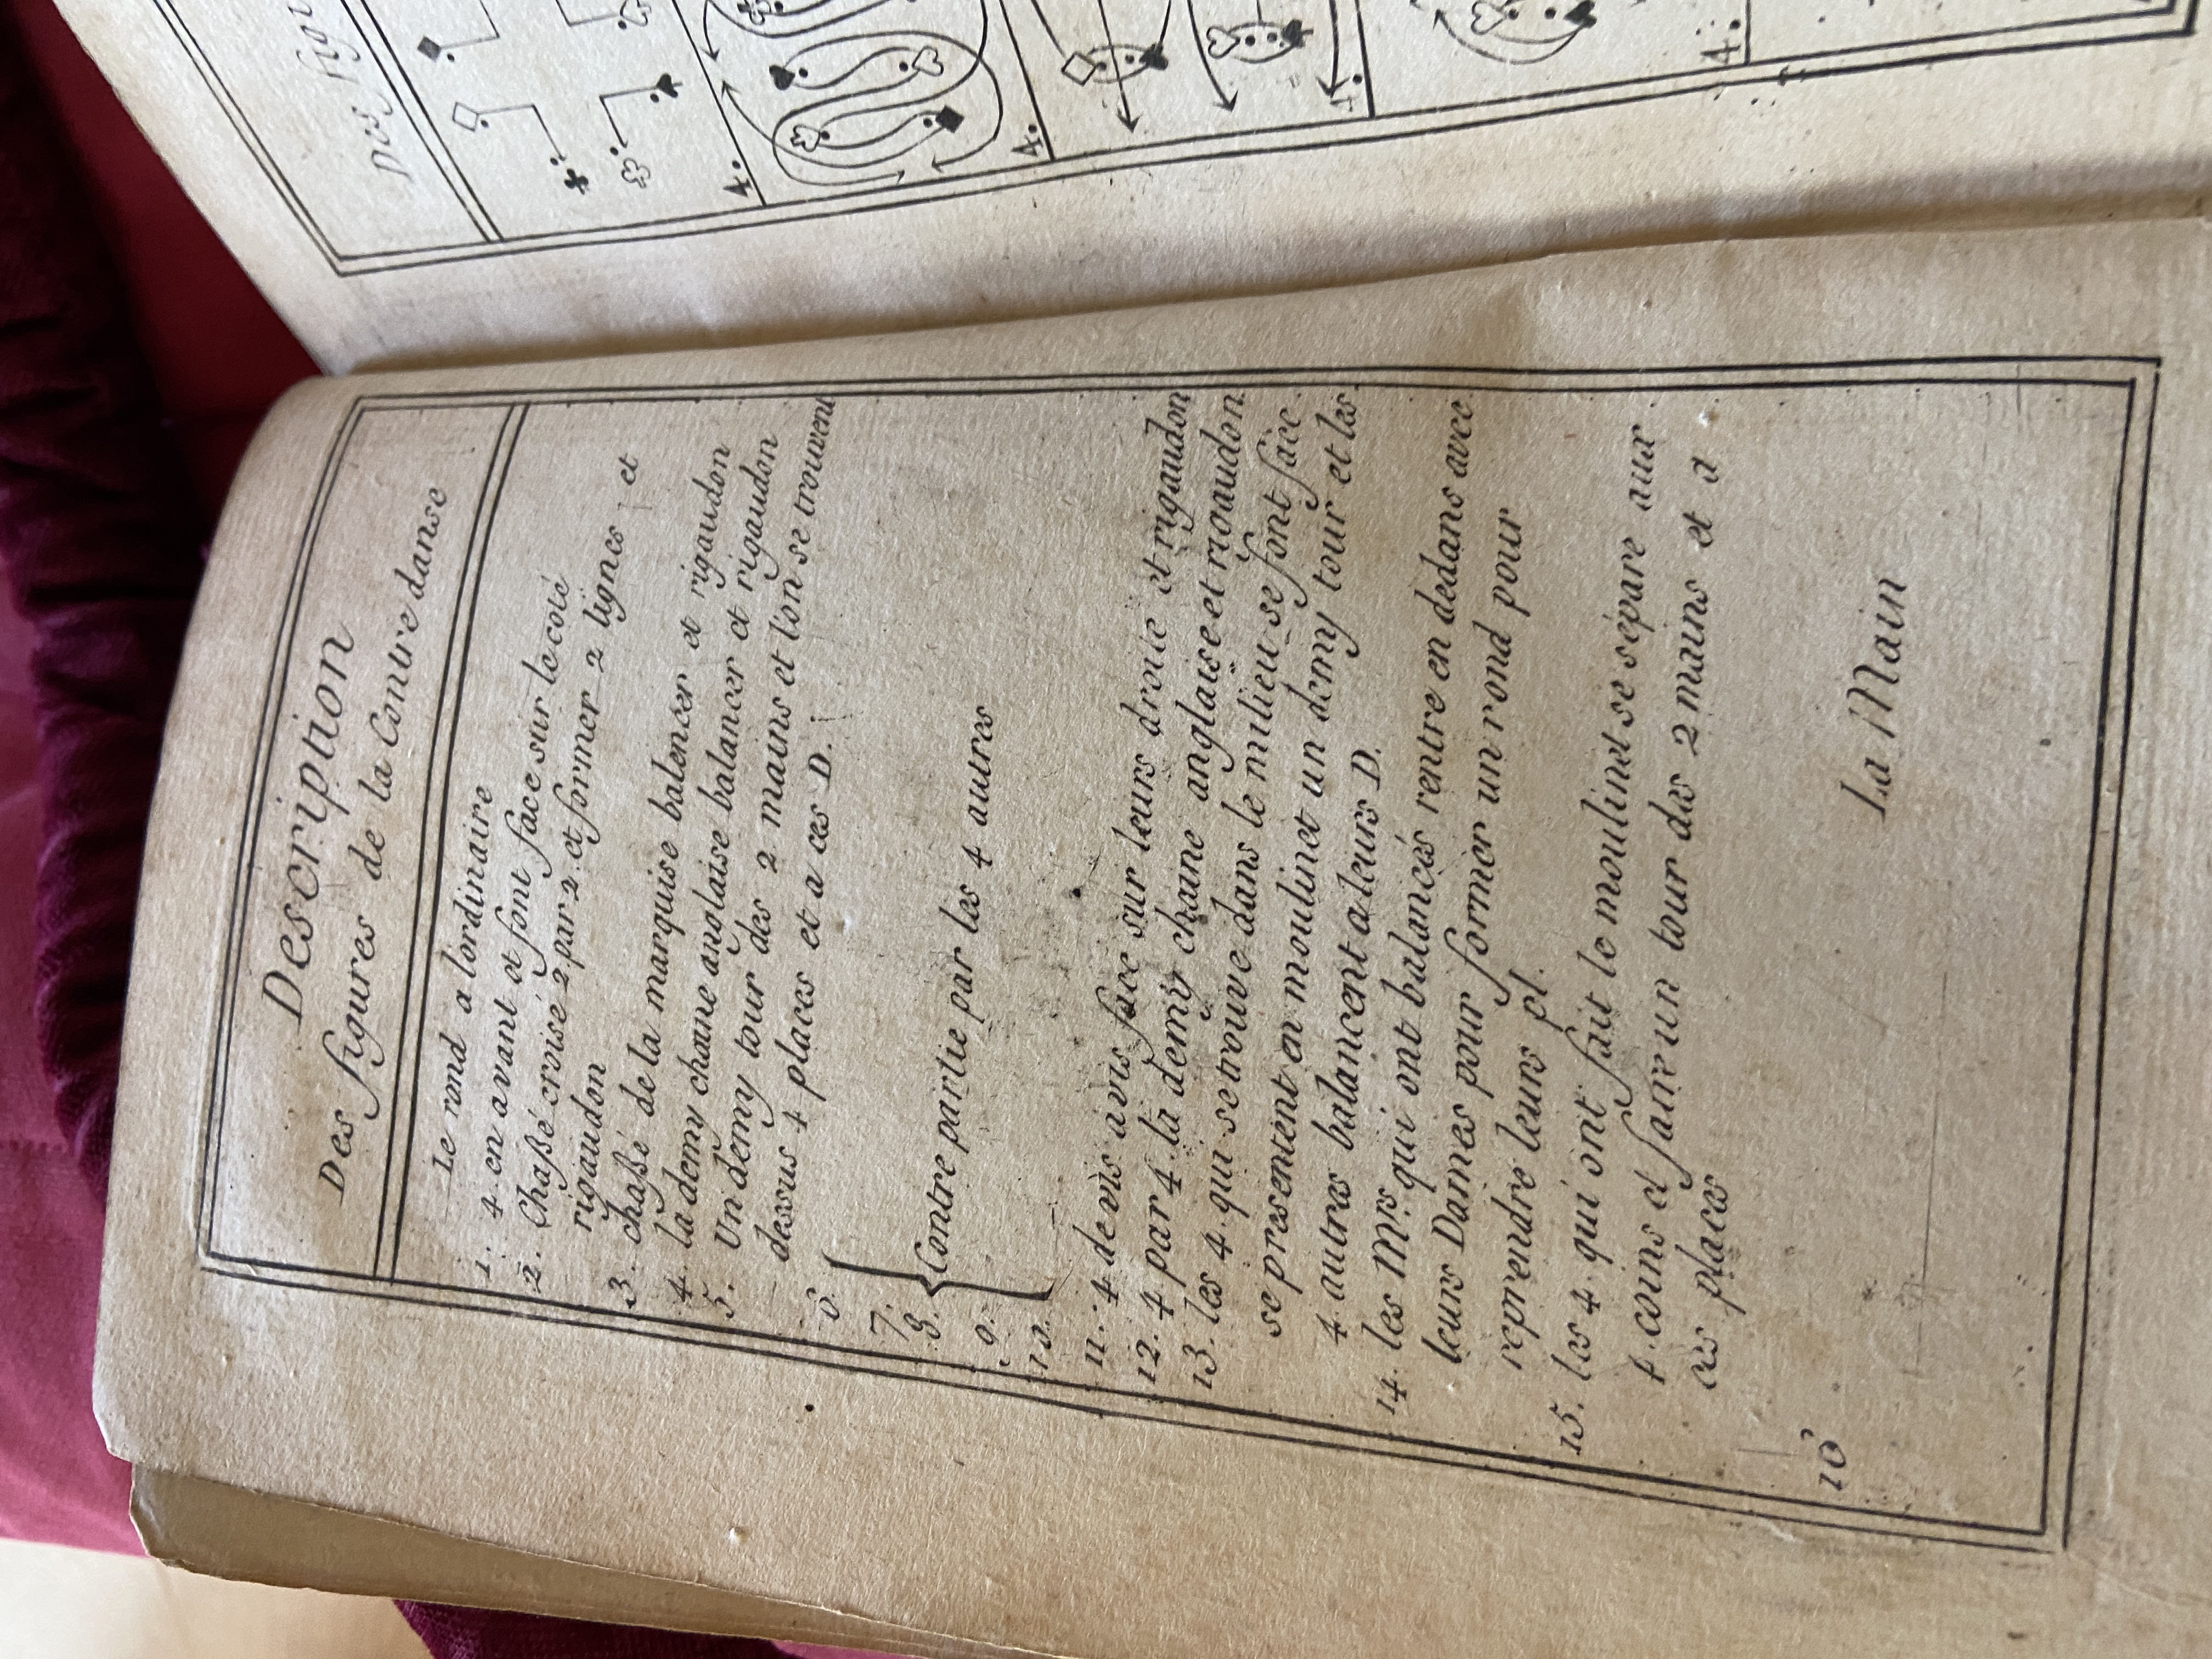 Description
Des figures de la Contre danse
Le rond a lordinaire
1. 4 en avant et font face sur le coté
2. Chaßé croisé 2 par 2. et former 2 lignes et
rigaudon
3. chaßé de la marquise balencer et rigaudon
4. la demy chaine anglaise balancer et rigaudon
5. Un demy tour des 2 mains et l'on se trouvent
dessus 4 places et a ces D.
6.
7.
8. Contre partie par les 4 autres
9.
10.
11. 4 de vis a vis face sur leurs droite et rigaudon
12. 4 par 4. la demy chaine anglaise et rigaudon
13. les 4. qui se trouve dans le milieu se font face
se presentent en moulinet un demy tour et les
4. autres balancent a leurs D.
14. les Mrs. qui ont balancés rentre en dedans avec
leurs Dames pour former un rond pour
reprendre leurs pl.
15. les 4. qui ont fait le moulinet se sépare aux
4. coins et faire un tour des 2 mains et a
ces places
16
La Main
Des figu
4.
4.
4.
4.